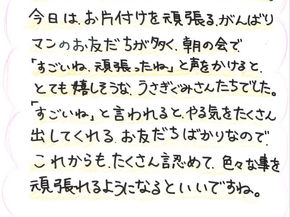 今日は、お片付けを頑張る、がんばり
マンのお友だちが多く、朝の会で
「すごいね、頑張ったね」と声をかけると、
とても嬉しそうな、うさぎぐみさんたちでした。
「すごいね」と言われると、やる気をたくさん
出してくれる、お友だちばかりなので、
これからも、たくさん認めて、色々な事を
頑張れるようになるといいですね。